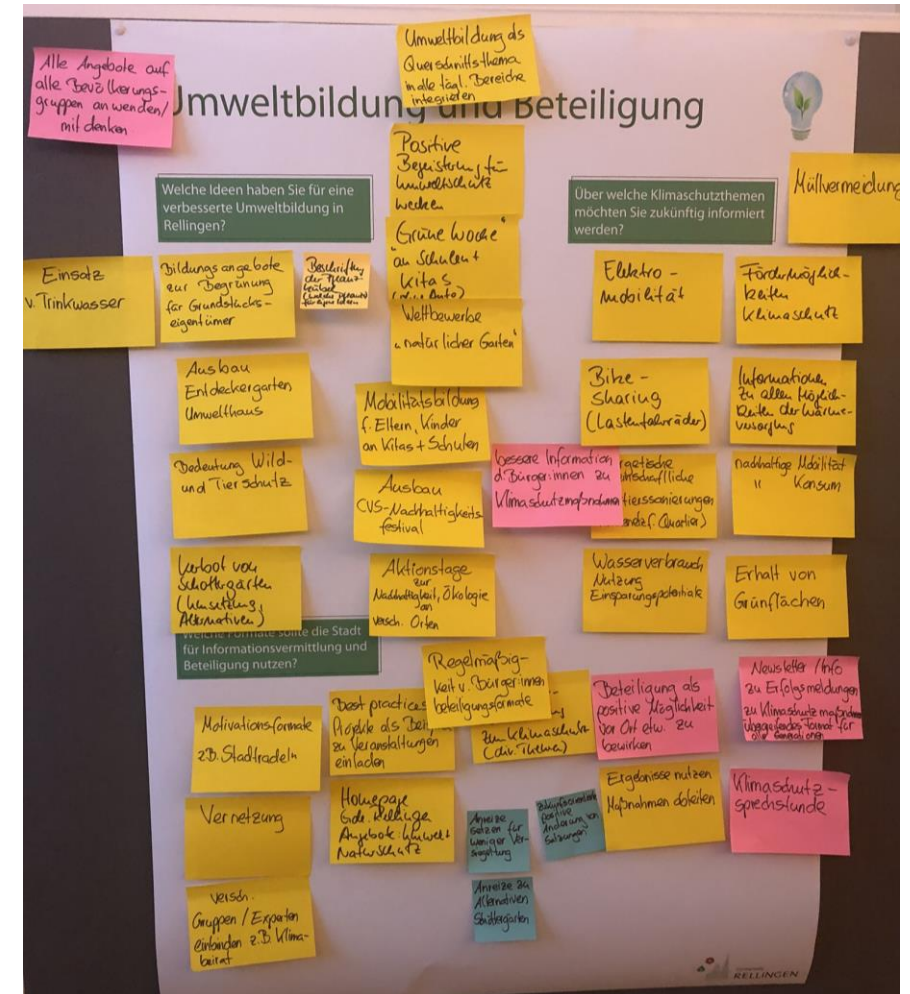 Alle Angebote auf
alle Bevölkerungs-
gruppen anwenden/
mit denken
Umweltbildung als
Querschnittsthema
in alle tägl. Bereiche
integrieren
Umweltbildung und Beteiligung
Positive
Begeisterung für
Umweltschutz
wecken
Welche Ideen haben Sie für eine
verbesserte Umweltbildung in
Rellingen?
Über welche Klimaschutzthemen
möchten Sie zukünftig informiert
werden?
Müllvermeidung
Einsatz
v. Trinkwasser
Bildungsangebote
zur Begrünung
für Grundstücks-
eigentümer
Beschriftung
der Pflanz-
kübel
"Grüne Woche"
an Schulen +
Kitas
Wettbewerbe
"natürlicher Garten"
Elektro-
mobilität
Fördermöglich-
keiten
Klimaschutz
Ausbau
Entdeckergarten
Umwelthaus
Mobilitätsbildung
f. Eltern, Kinder
an Kitas + Schulen
Bike-
Sharing
(Lastenfahrräder)
Informationen
zu allen Möglich-
keiten der Wärme-
versorgung
Bedeutung Wild-
und Tierschutz
Ausbau
CVS-Nachhaltigkeits-
festival
bessere Information
d. Bürger:innen zu
Klimaschutzmaßnahmen
rgetische
tschaftliche
tierssanierungen
netz f. Quartier)
nachhaltige Mobilität
" Konsum
Verbot von
Schottergärten
(Umsetzung,
Alternativen)
Aktionstage
zur
Nachhaltigkeit, Ökologie
an
versch. Orten
Wasserverbrauch
Nutzung
Einsparungspotentiale
Erhalt von
Grünflächen
Welche Formate sollte die Stadt
für Informationsvermittlung und
Beteiligung nutzen?
Motivationsformate
z.B. Stadtradeln
Best practices
Projekte als Beisp
zu Veranstaltungen
einladen
Regelmäßig-
keit v. Bürger:innen
beteiligungsformate
zum Klimaschutz
(div. Themen)
Beteiligung als
positive Möglichkeit
vor Ort etw. zu
bewirken
Newsletter / Info
zu Erfolgsmeldungen
zu Klimaschutzmaßnahmen
übergreifendes Format für
alle Generationen
Vernetzung
Homepage
Gde. Rellingen
Angebote: Umwelt +
Naturschutz
Anreize
setzen für
weniger Ver-
siegelung
positive
Änderung von
Satzungen
Ergebnisse nutzen
Maßnahmen ableiten
Klimaschutz-
sprechstunde
versch.
Gruppen / Experten
einbinden z.B. Klima-
beirat
Anreize zu
Alternativen
RELLINGEN